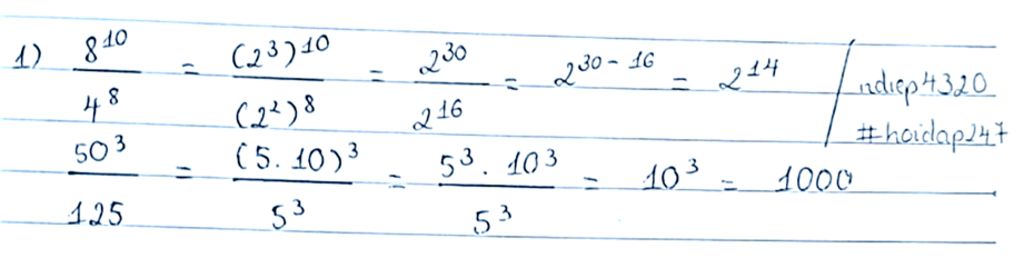 1) 8^10 / 4^8 = (2^3)^10 / (2^2)^8 = 2^30 / 2^16 = 2^30-16 = 2^14
ndiep4320
#hoidap247
50^3 / 125 = (5.10)^3 / 5^3 = 5^3 . 10^3 / 5^3 = 10^3 = 1000